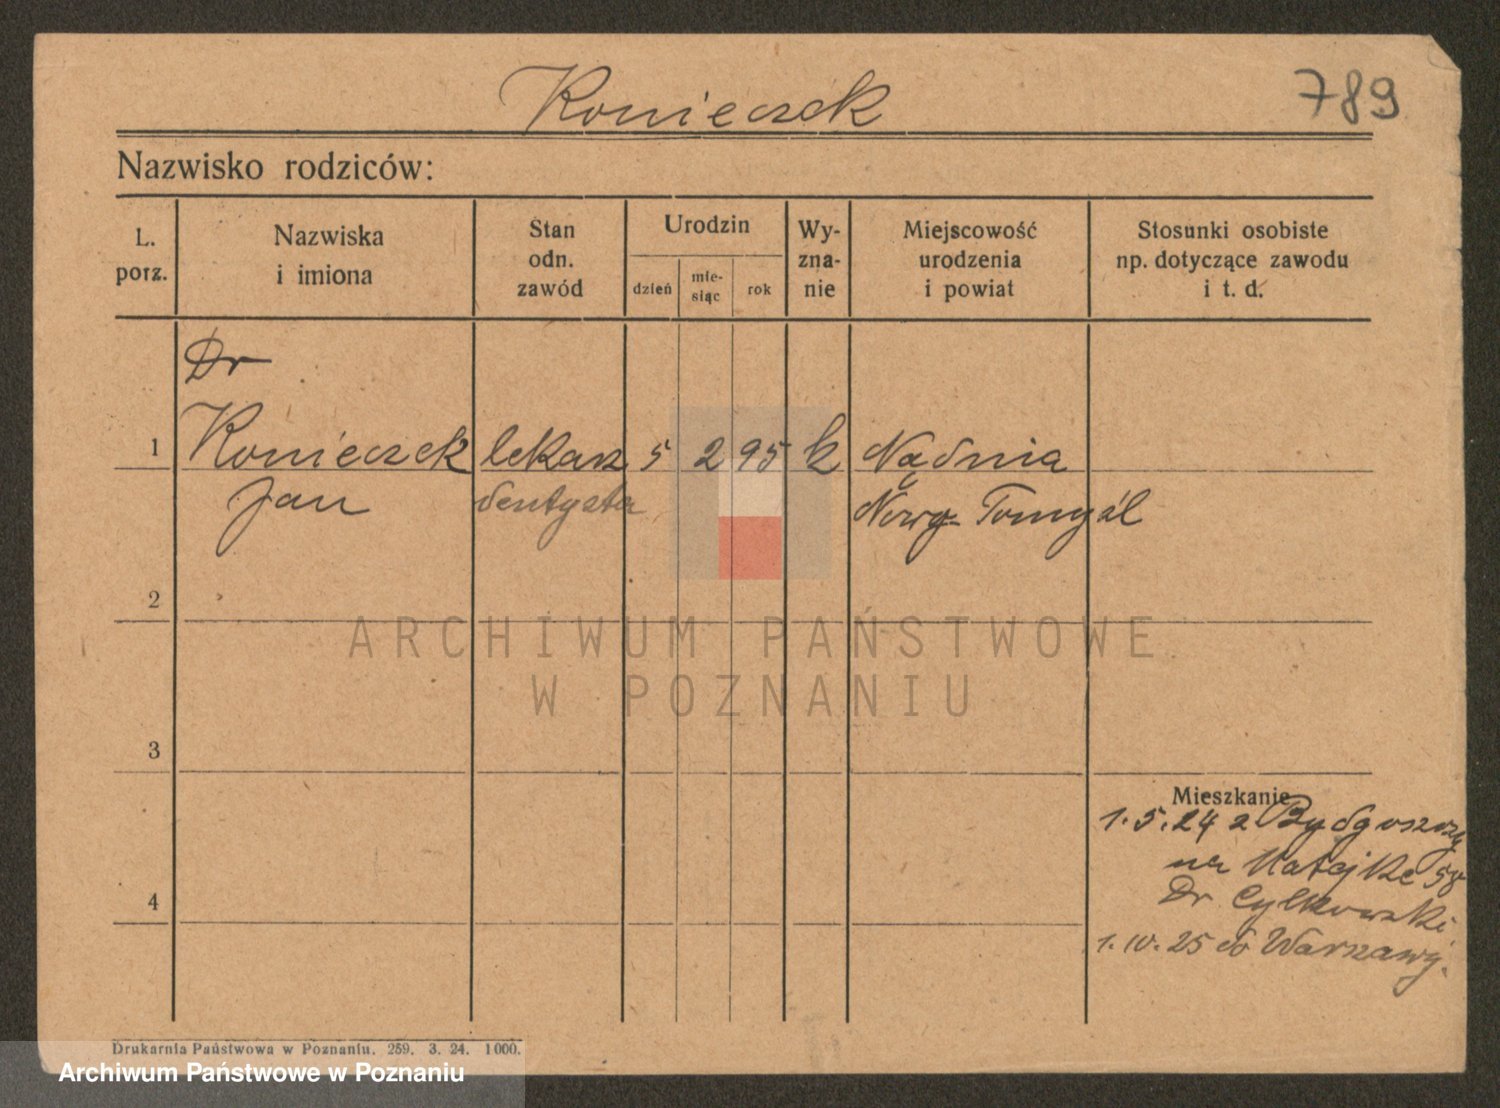 Konieczek
789
Nazwisko rodziców:
L. porz.
Nazwiska i imiona
Stan odn. zawód
Urodzin
dzień
mie-siąc
rok
Wy-zna-nie
Miejscowość urodzenia i powiat
Stosunki osobiste np. dotyczące zawodu i t. d.
Dr
1 Konieczek lekarz 5 2 95 k Nądnia
Jan dentysta Nowy Tomyśl
2
3
Mieszkanie
1.5.24 z Bydgoszczy
na Matejki 58
4
Dr Cylkowski
1.10.25 do Warszawy.
ARCHIWUM PAŃSTWOWE
W POZNANIU
Drukarnia Państwowa w Poznaniu. 259. 3. 24. 1000.
Archiwum Państwowe w Poznaniu